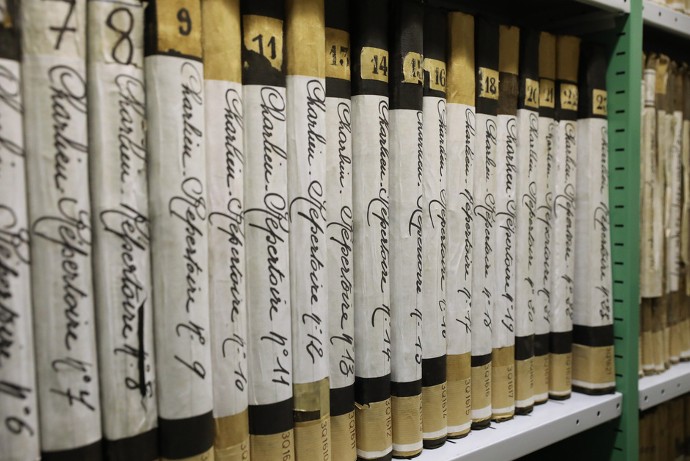 Répertoire n° 6
7
Charlieu. Répertoire n° 7
8
Charlieu. Répertoire n° 8
9
Charlieu. Répertoire n° 9
Charlieu. Répertoire n° 10
11
Charlieu. Répertoire n° 11
Charlieu. Répertoire n° 12
13
Charlieu. Répertoire n° 13
14
Charlieu. Répertoire n° 14
15
Charlieu. Répertoire n° 15
16
Charlieu. Répertoire n° 16
3Q1614
Charlieu. Répertoire n° 17
18
Charlieu. Répertoire n° 18
3Q1616
Charlieu. Répertoire n° 19
3Q1617
20
Charlieu. Répertoire n° 20
21
Répertoire n° 21
22
Charlieu. Répertoire n° 22
23
Charlieu. Répertoire n° 23